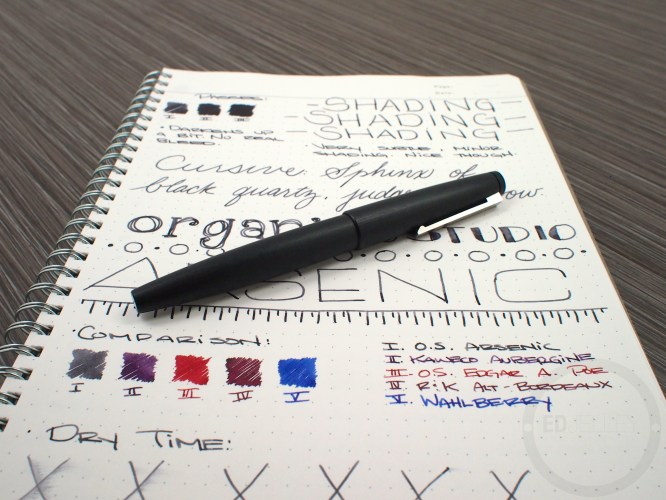 I II III
· DARKENS UP
A BIT. NO REAL
BLEED.
- SHADING -
- SHADING -
- SHADING -
· VERY SUBTLE, MINOR
SHADING. NICE THOUGH.
Cursive: Sphinx of
black quartz,
STUDIO
ARSENIC
· COMPARISON:
I II III IV V
I. O.S. ARSENIC
II KAWECO AUBERGINE
III O.S. EDGAR A. POE
IV R&K ALT-BORDEAUX
V. WAHLBERRY
· DRY TIME:
X X X X X X